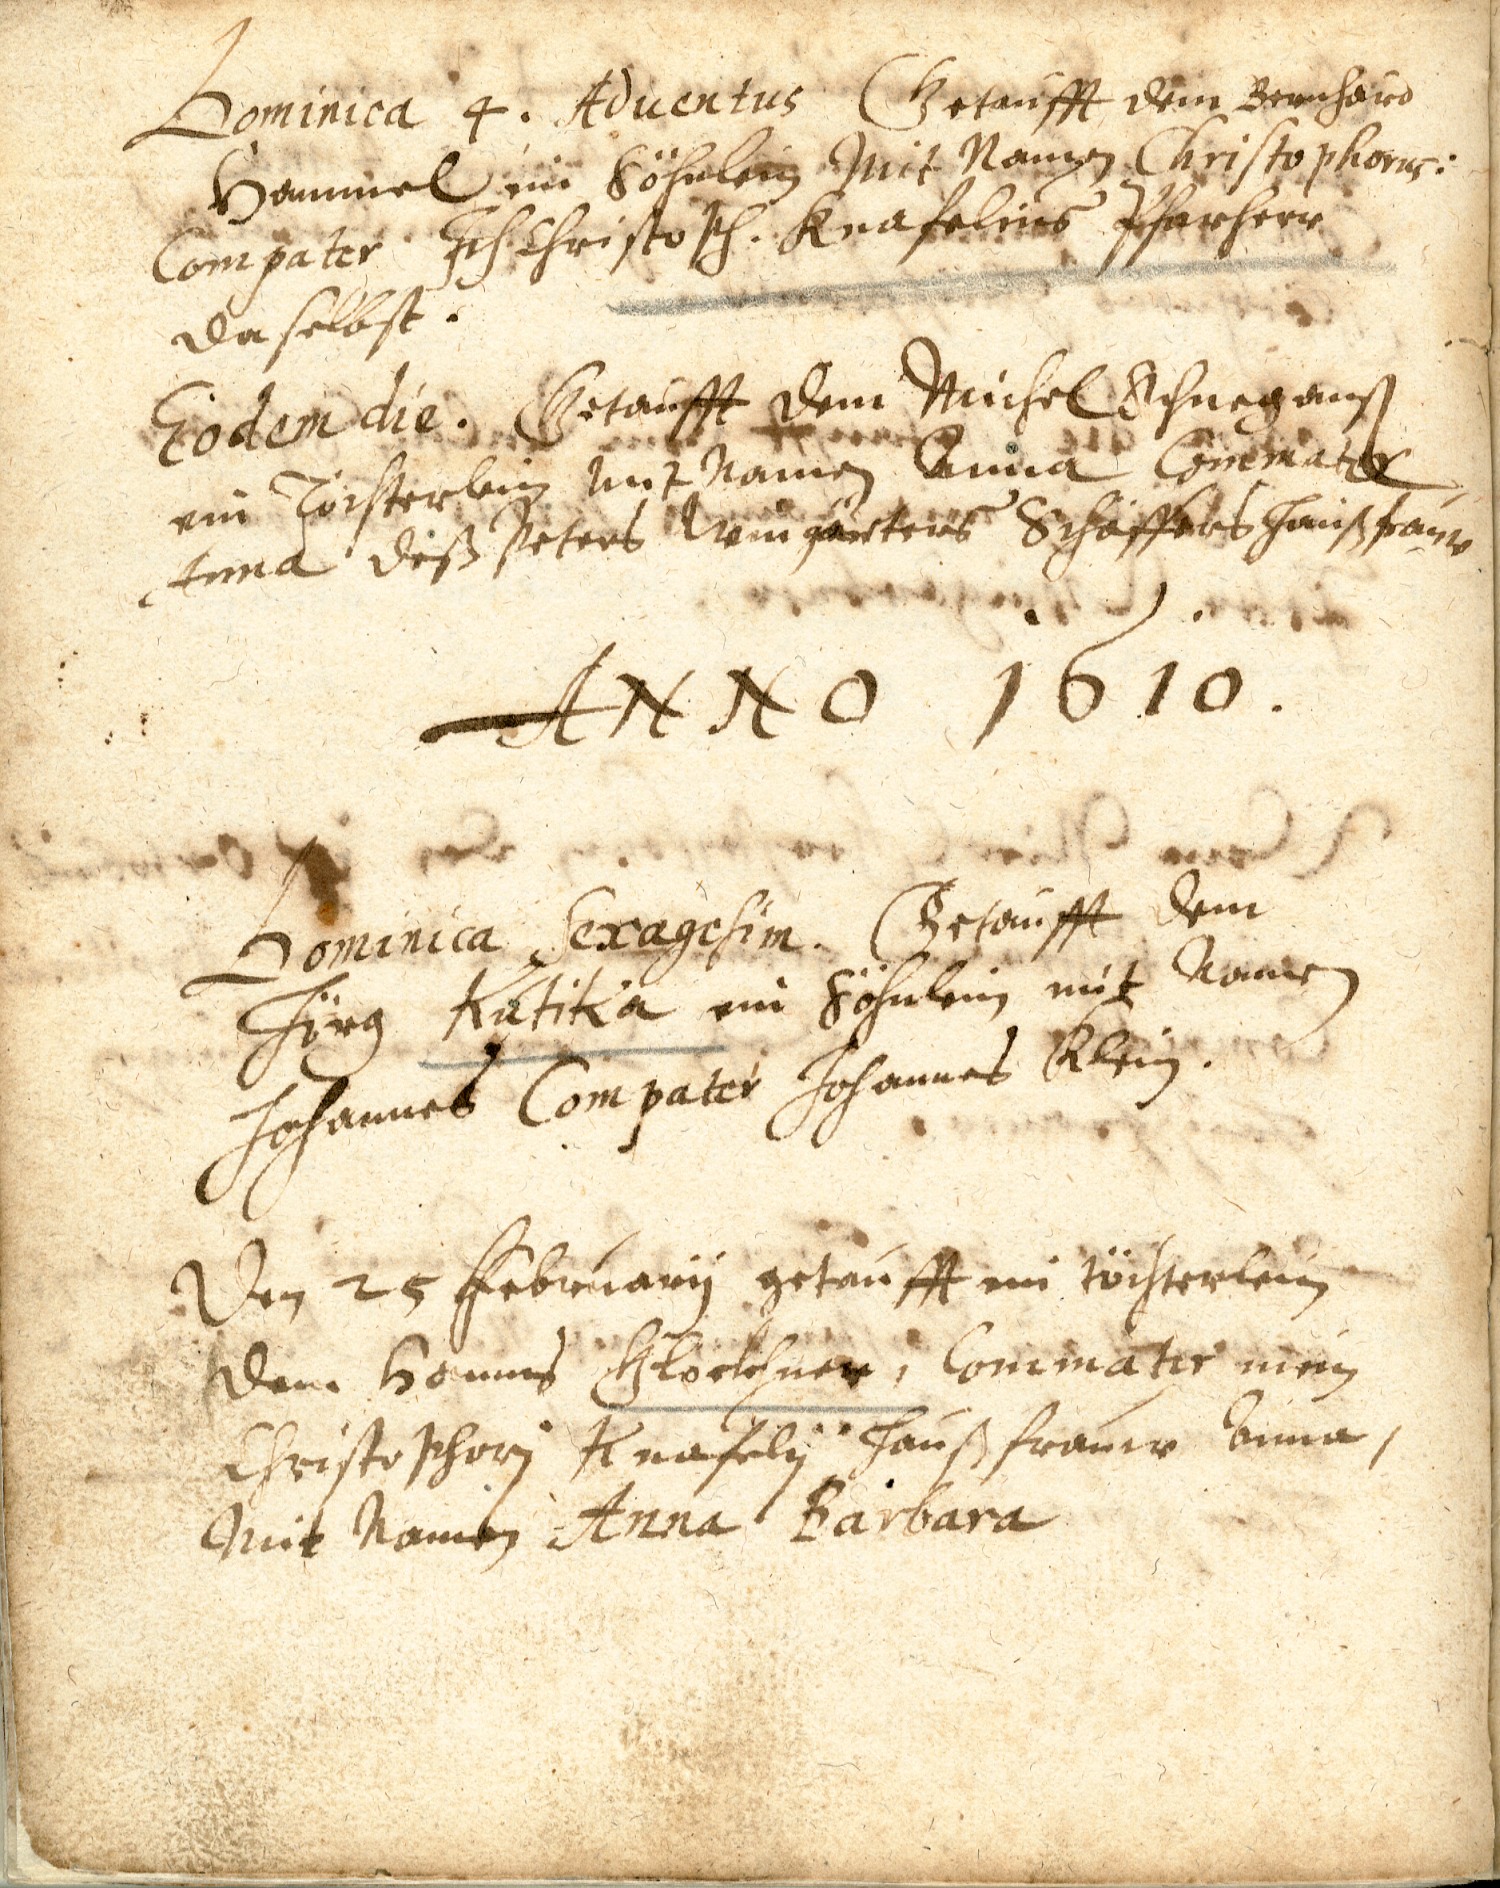 Dominica 4. Aduentus Getaufft dem Bernhard
Hammel ein Söhnlein Mit Namen Christophorus:
Compater Ich Christoph. Knafelius Pfarherr
daselbst.
Eodem die. Getaufft dem Michel Schneganß
ein Töchterlein mit Namen Anna Commater
Anna deß Peters Weingarters Schäffers haußfrauw
ANNO 1610.
Dominica Sexagesim. Getaufft dem
Jörg Kutika ein Söhnlein mit Namen
Johannes Compater Johannes Klein.
Den 25 Februarij getaufft ein töchterlein
dem Hanns Glockhner, Commater mein
Christophorj Knafelij haußfrauw Anna,
Mit Namen Anna Barbara